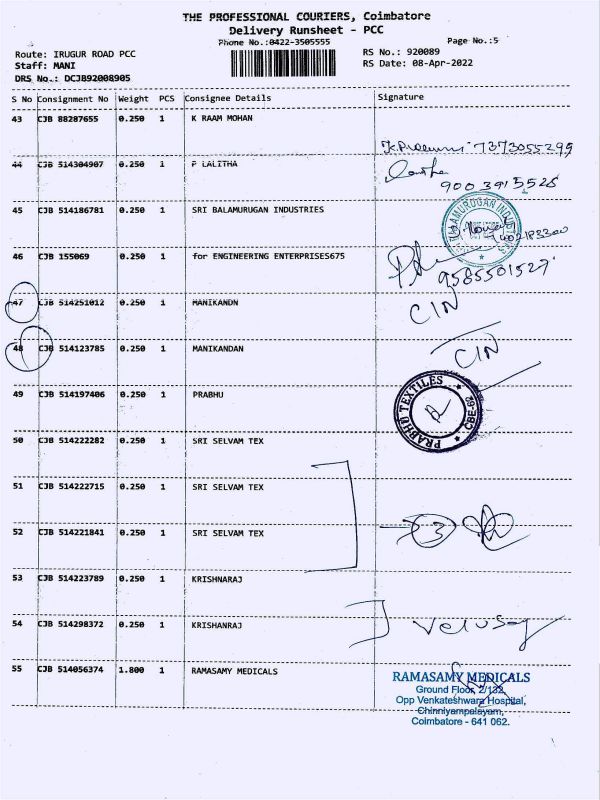 THE PROFESSIONAL COURIERS, Coimbatore
Delivery Runsheet - PCC
Phone No.:0422-3505555
Page No.:5
Route: IRUGUR ROAD PCC
RS No.: 920089
Staff: MANI
RS Date: 08-Apr-2022
DRS No.: DCJB92008905
S No Consignment No Weight PCS Consignee Details Signature
43 CJB 88287655 0.250 1 K RAAM MOHAN
7373055299
44 CJB 514304907 0.250 1 P LALITHA
Lalitha
9003915528
45 CJB 514186781 0.250 1 SRI BALAMURUGAN INDUSTRIES
46 CJB 155069 0.250 1 for ENGINEERING ENTERPRISES675
9585501527
47 CJB 514251012 0.250 1 MANIKANDN
CIN
48 CJB 514123785 0.250 1 MANIKANDAN
CIN
49 CJB 514197406 0.250 1 PRABHU
PRABHU TEXTILES
CBE-62
50 CJB 514222282 0.250 1 SRI SELVAM TEX
51 CJB 514222715 0.250 1 SRI SELVAM TEX
52 CJB 514221841 0.250 1 SRI SELVAM TEX
3
53 CJB 514223789 0.250 1 KRISHNARAJ
54 CJB 514298372 0.250 1 KRISHANRAJ
Velusamy
55 CJB 514056374 1.800 1 RAMASAMY MEDICALS
RAMASAMY MEDICALS
Ground Floor, 2/132,
Opp Venkateshwara Hospital,
Chinniyampalayam,
Coimbatore - 641 062.